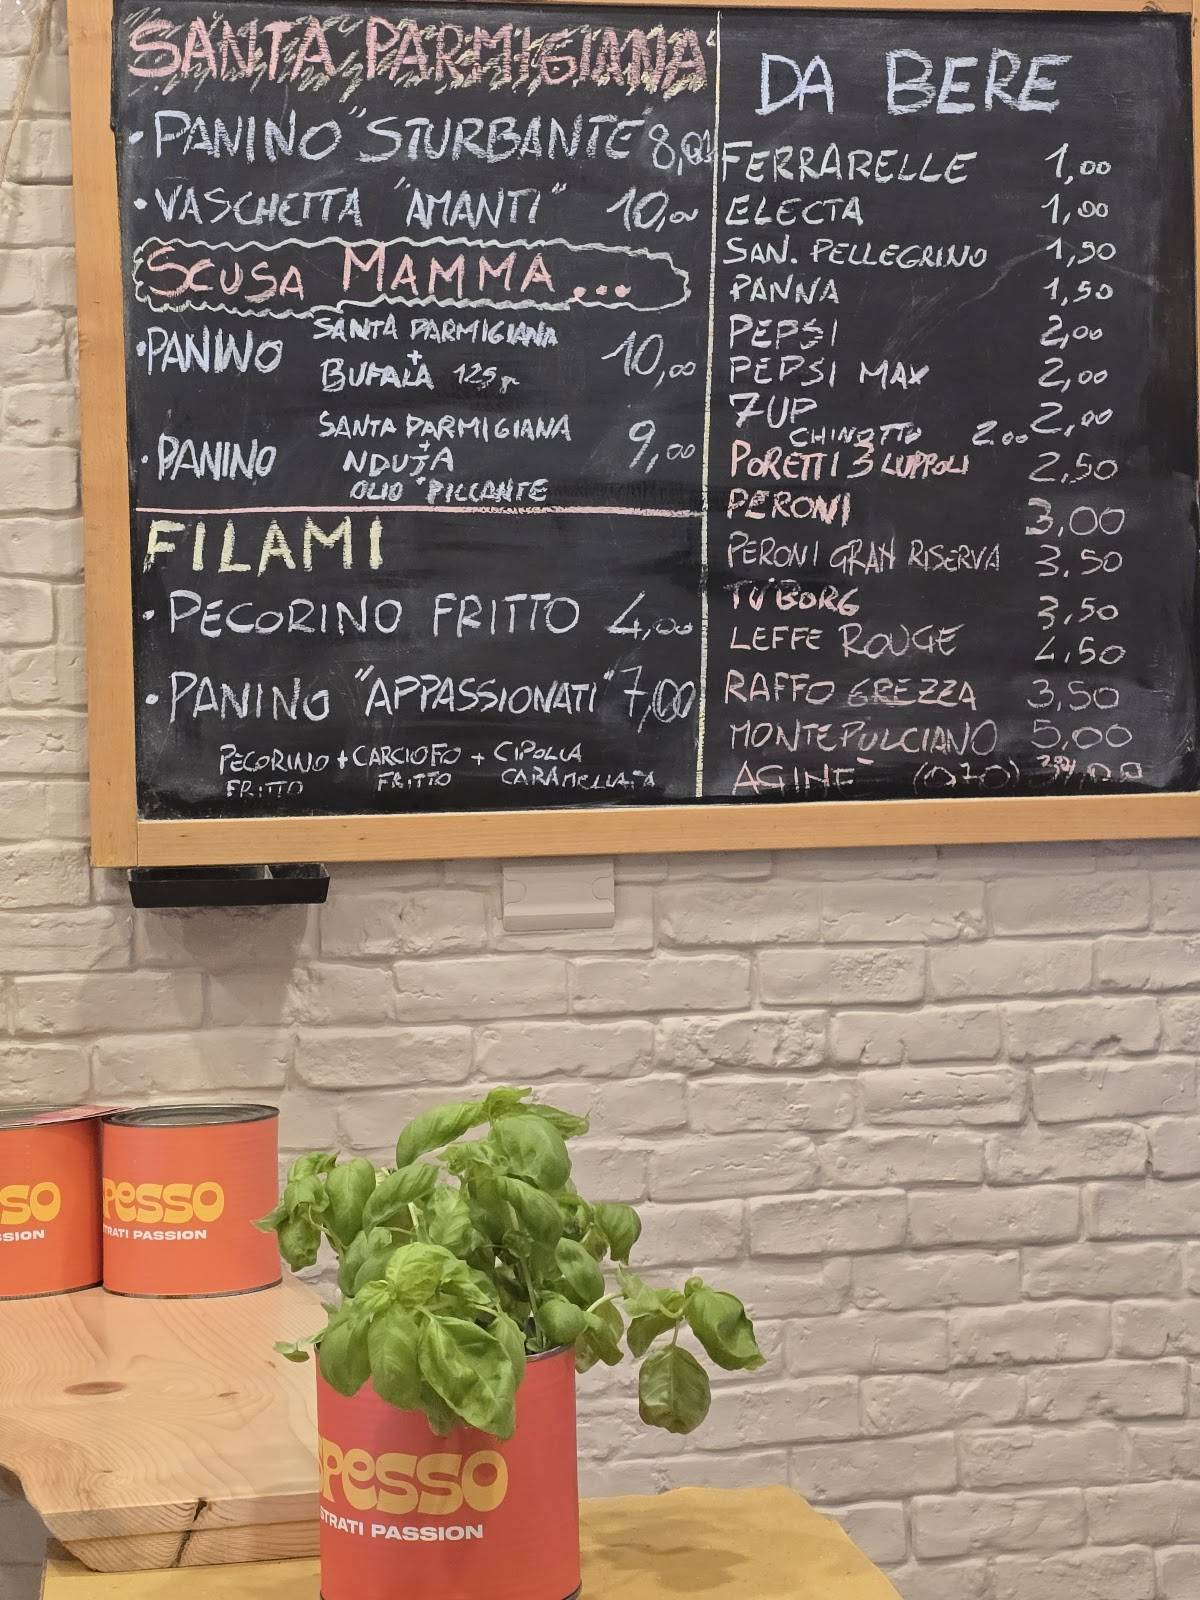 SANTA PARMIGIANA
• PANINO "STURBANTE" 8,00
• VASCHETTA "AMANTI" 10,00
SCUSA MAMMA...
• PANINO SANTA PARMIGIANA + BUFALA 125 gr 10,00
• PANINO SANTA PARMIGIANA + NDUJA OLIO PICCANTE 9,00
FILAMI
• PECORINO FRITTO 4,00
• PANINO "APPASSIONATI" 7,00
PECORINO + CARCIOFO + CIPOLLA
FRITTO FRITTO CARAMELLATA
DA BERE
FERRARELLE 1,00
ELECTA 1,00
SAN. PELLEGRINO 1,50
PANNA 1,50
PEPSI 2,00
PEPSI MAX 2,00
7UP 2,00
CHINOTTO 2.00
PORETTI 3 LUPPOLI 2,50
PERONI 3,00
PERONI GRAN RISERVA 3.50
TUBORG 3,50
LEFFE ROUGE 4,50
RAFFO GREZZA 3,50
MONTEPULCIANO 5,00
AGINE' (070)
SO
SSION
PESSO
TRATI PASSION
SPESSO
STRATI PASSION